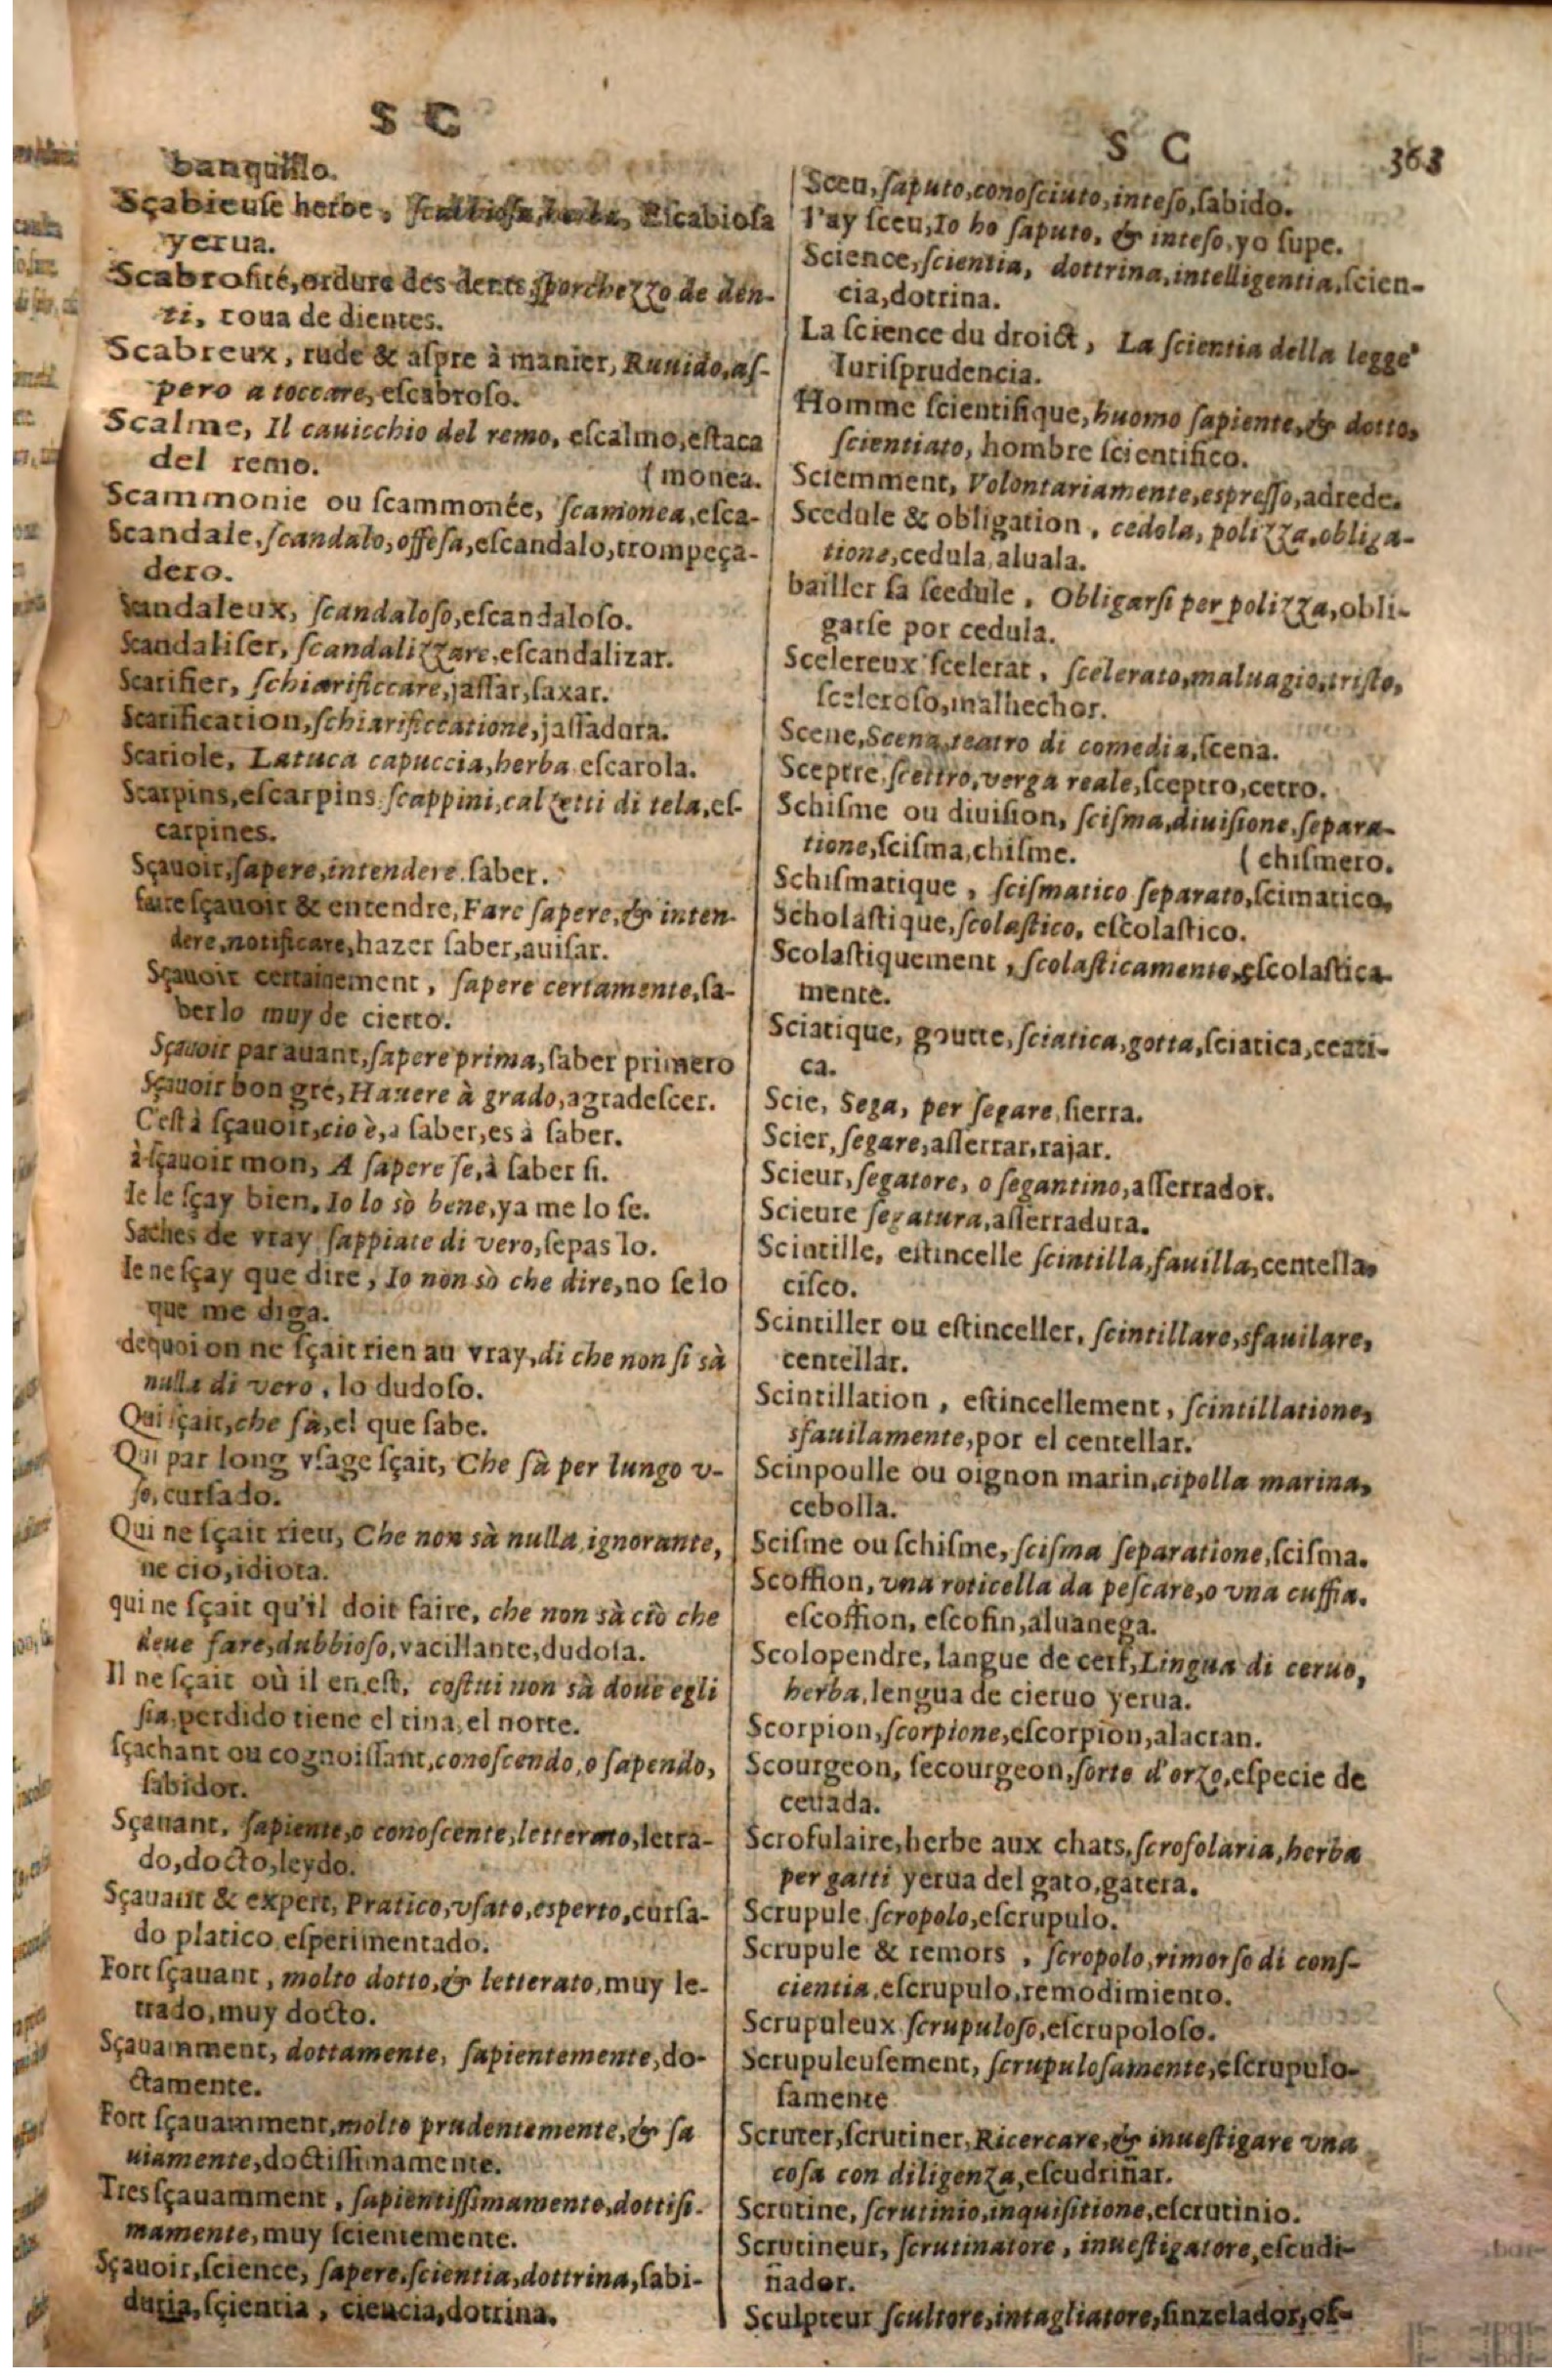 S C
banquillo.
Sçabieuſe herbe, ſcabbioſa, herba, Eſcabioſa
yerua.
Scabroſité, ordure des dents ſporchezzo de den-
ti, toua de dientes.
Scabreux, rude & aſpre à manier, Ruuido, aſ-
pero a toccare, eſcabroſo.
Scalme, Il cauicchio del remo, eſcalmo, eſtaca
del remo. (monea.
Scammonie ou ſcammonée, ſcamonea, eſca-
Scandale, ſcandalo, offeſa, eſcandalo, trompeça-
dero.
Scandaleux, ſcandaloſo, eſcandaloſo.
Scandaliſer, ſcandalizzare, eſcandalizar.
Scarifier, ſchiarificcare, jaſſar, ſaxar.
Scarification, ſchiarificcatione, jaſſadura.
Scariole, Latuca capuccia, herba eſcarola.
Scarpins, eſcarpins ſcappini, calzetti di tela, eſ-
carpines.
Sçauoir, ſapere, intendere ſaber.
faire ſçauoir & entendre, Fare ſapere, & inten-
dere, notificare, hazer ſaber, auiſar.
Sçauoir certainement, ſapere certamente, ſa-
berlo muy de cierto.
Sçauoir par auant, ſapere prima, ſaber primero
Sçauoir bon gré, Hauere à grado, agradeſcer.
C'eſt à ſçauoir, cio è, a ſaber, es à ſaber.
à ſçauoir mon, A ſapere ſe, à ſaber ſi.
Ie le ſçay bien, Io lo sò bene, ya me lo ſe.
Saches de vray ſappiate di vero, ſepas lo.
Ie ne ſçay que dire, Io non sò che dire, no ſe lo
que me diga.
dequoi on ne ſçait rien au vray, di che non ſi sà
nulla di vero, lo dudoſo.
Qui ſçait, che ſà, el que ſabe.
Qui par long vſage ſçait, Che ſà per lungo v-
ſo, curſado.
Qui ne ſçait rieu, Che non sà nulla ignorante,
ne cio, idiota.
qui ne ſçait qu'il doit faire, che non sà ciò che
deue fare, dubbioſo, vacillante, dudoſa.
Il ne ſçait où il en eſt, coſtui non sà doue egli
ſia, perdido tiene el tina, el norte.
ſçachant ou cognoiſſant, conoſcendo, o ſapendo,
ſabidor.
Sçauant, ſapiente, o conoſcente, letterato, letra-
do, docto, leydo.
Sçauant & expert, Pratico, vſato, eſperto, curſa-
do platico eſperimentado.
Fort ſçauant, molto dotto, & letterato, muy le-
trado, muy docto.
Sçauamment, dottamente, ſapientemente, do-
ctamente.
Fort ſçauamment, molto prudentemente, & ſa
uiamente, doctiſſimamente.
Tres ſçauamment, ſapientiſſimamente, dottiſi-
mamente, muy ſcientemente.
Sçauoir, ſcience, ſapere, ſcientia, dottrina, ſabi-
duria, ſçientia, ciencia, dotrina.
S C 363
Sceu, ſaputo, conoſciuto, inteſo, ſabido.
I'ay ſceu, Io ho ſaputo, & inteſo, yo ſupe.
Science, ſcientia, dottrina, intelligentia, ſcien-
cia, dotrina.
La ſcience du droict, La ſcientia della legge
Iuriſprudencia.
Homme ſcientifique, huomo ſapiente, & dotto,
ſcientiato, hombre ſcientifico.
Sciemment, Volontariamente, eſpreſſo, adrede.
Scedule & obligation, cedola, polizza, obliga-
tione, cedula, aluala.
bailler ſa ſcedule, Obligarſi per polizza, obli-
garſe por cedula.
Scelereux ſcelerat, ſcelerato, maluagio, triſto,
ſceleroſo, malhechor.
Scene, Scena, teatro di comedia, ſcena.
Sceptre ſcettro, verga reale, ſceptro, cetro.
Schiſme ou diuiſion, ſciſma, diuiſione, ſepara-
tione, ſciſma, chiſme. (chiſmero.
Schiſmatique, ſciſmatico ſeparato, ſcimatico,
Scholaſtique, ſcolaſtico, eſcolaſtico.
Scolaſtiquement, ſcolaſticamente, eſcolaſtica-
mente.
Sciatique, goutte, ſciatica, gotta, ſciatica, ceati-
ca.
Scie, Sega, per ſegare, ſierra.
Scier, ſegare, aſſerrar, rajar.
Scieur, ſegatore, o ſegantino, aſſerrador.
Scieure ſegatura, aſſerradura.
Scintille, eſtincelle ſcintilla, fauilla, centella,
ciſco.
Scintiller ou eſtinceller, ſcintillare, sfauilare,
centellar.
Scintillation, eſtincellement, ſcintillatione,
sfauilamente, por el centellar.
Scinpoulle ou oignon marin, cipolla marina,
cebolla.
Sciſme ou ſchiſme, ſciſma ſeparatione, ſciſma.
Scoffion, vna roticella da peſcare, o vna cuffia.
eſcoffion, eſcofin, aluanega.
Scolopendre, langue de cerf, Lingua di ceruo,
herba, lengua de cieruo yerua.
Scorpion, ſcorpione, eſcorpion, alacran.
Scourgeon, ſecourgeon, ſorte d'orzo, eſpecie de
ceuada.
Scrofulaire, herbe aux chats, ſcrofolaria, herba
per gatti yerua del gato, gatera.
Scrupule ſcropolo, eſcrupulo.
Scrupule & remors, ſcropolo, rimorſo di conſ-
cientia, eſcrupulo, remodimiento.
Scrupuleux ſcrupuloſo, eſcrupoloſo.
Scrupuleuſement, ſcrupuloſamente, eſcrupulo-
ſamente
Scruter, ſcrutiner, Ricercare, & inueſtigare vna
coſa con diligenza, eſcudriñar.
Scrutine, ſcrutinio, inquiſitione, eſcrutinio.
Scrutineur, ſcrutinatore, inueſtigatore, eſcudi-
ñador.
Sculpteur ſcultore, intagliatore, ſinzelador, oſ-